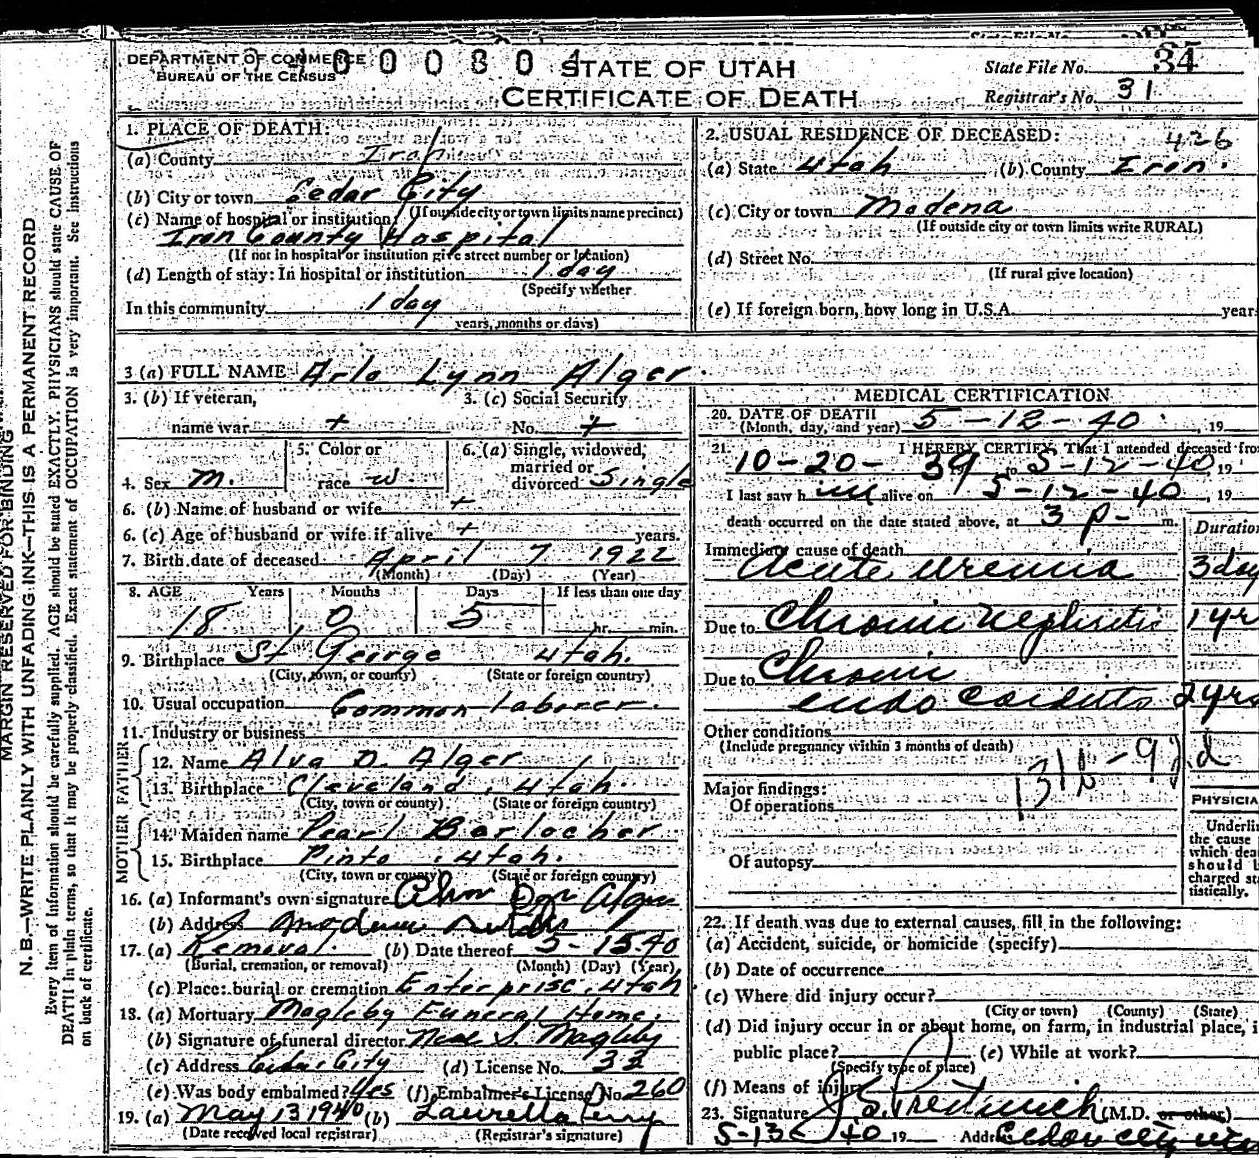 DEPARTMENT OF COMMERCE
BUREAU OF THE CENSUS
STATE OF UTAH
CERTIFICATE OF DEATH
State File No. 34
Registrar's No. 31
1. PLACE OF DEATH:
(a) County Iron
(b) City or town Cedar City
(If outside city or town limits name precinct)
(c) Name of hospital or institution
Iron County Hospital
(If not in hospital or institution give street number or location)
(d) Length of stay: In hospital or institution 1 day
(Specify whether
In this community 1 day
years, months or days)
2. USUAL RESIDENCE OF DECEASED: 426
(a) State Utah (b) County Iron.
(c) City or town Modena
(If outside city or town limits write RURAL)
(d) Street No.
(If rural give location)
(e) If foreign born, how long in U.S.A. year
3 (a) FULL NAME Arlo Lynn Alger.
3. (b) If veteran, name war +
3. (c) Social Security No. +
4. Sex M.
5. Color or race W.
6. (a) Single, widowed, married or divorced Single
6. (b) Name of husband or wife +
6. (c) Age of husband or wife if alive + years.
7. Birth date of deceased April 7 1922
(Month) (Day) (Year)
8. AGE Years Months Days If less than one day
18 0 5 hr. min.
9. Birthplace St George Utah.
(City, town, or county) (State or foreign country)
10. Usual occupation Common Laborer.
11. Industry or business
FATHER
12. Name Alva D. Alger
13. Birthplace Cleveland, Utah.
(City, town or county) (State or foreign country)
MOTHER
14. Maiden name Pearl Barlocher
15. Birthplace Pinto, Utah.
(City, town or county) (State or foreign country)
16. (a) Informant's own signature Alger
(b) Address
17. (a) Removal (b) Date thereof 5-15-40
(Burial, cremation, or removal) (Month) (Day) (Year)
(c) Place: burial or cremation Enterprise, Utah
18. (a) Mortuary Magleby Funeral Home.
(b) Signature of funeral director Neal S. Magleby
(c) Address Cedar City (d) License No. 33
(e) Was body embalmed? Yes (f) Embalmer's License No. 260
19. (a) May 13 1940 (b) Lauretta Perry
(Date received local registrar) (Registrar's signature)
MEDICAL CERTIFICATION
20. DATE OF DEATH
(Month, day, and year) 5-12-40. , 19
21. I HEREBY CERTIFY, That I attended deceased fro
10-20-39 to 5-12-40, 19
I last saw him alive on 5-12-40 , 19
death occurred on the date stated above, at 3 p- m.
Duration
Immediate cause of death
Acute uremia 3 day
Due to Chronic nephritis 1 yr
Due to Chronic
endo carditis 2 yrs
Other conditions
(Include pregnancy within 3 months of death)
Major findings:
Of operations
Of autopsy
PHYSICIA
Underlin
the cause
which dea
should b
charged sta
tistically.
22. If death was due to external causes, fill in the following:
(a) Accident, suicide, or homicide (specify)
(b) Date of occurrence
(c) Where did injury occur?
(City or town) (County) (State)
(d) Did injury occur in or about home, on farm, in industrial place, i
public place? (e) While at work?
(Specify type of place)
(f) Means of injury
23. Signature (M.D. or other)
5-13-40 19 Address Cedar City
MARGIN RESERVED FOR BINDING
N. B.—WRITE PLAINLY WITH UNFADING INK—THIS IS A PERMANENT RECORD
Every item of information should be carefully supplied. AGE should be stated EXACTLY. PHYSICIANS should state CAUSE OF
DEATH in plain terms, so that it may be properly classified. Exact statement of OCCUPATION is very important. See Instructions
on back of certificate.